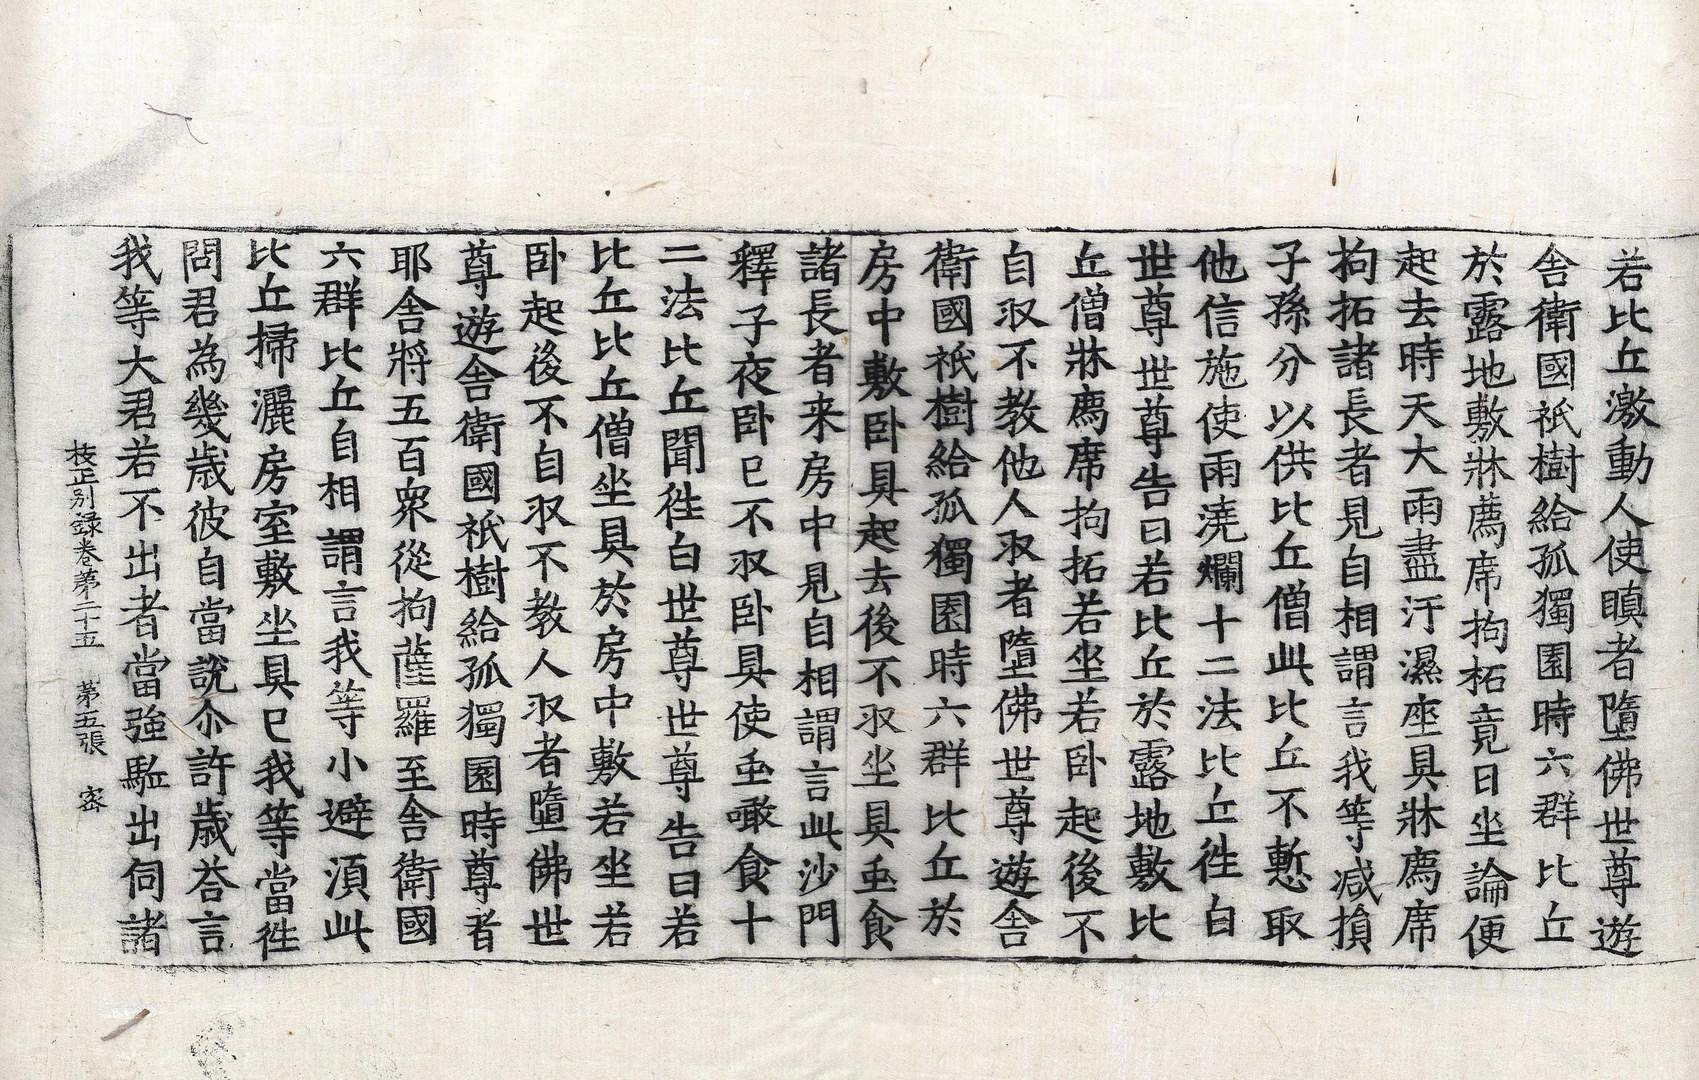 若比丘激動人使瞋者墮佛世尊遊
舍衛國祇樹給孤獨園時六群比丘
於露地敷牀薦席拘柘竟日坐論便
起去時天大雨盡汙濕座具牀薦席
拘柘諸長者見自相謂言我等减損
子孫分以供比丘僧此比丘不慙取
他信施使雨澆爛十二法比丘徃白
世尊世尊告曰若比丘於露地敷比
丘僧牀薦席拘柘若坐若卧起後不
自収不教他人収者墮佛世尊遊舍
衛國祇樹給孤獨園時六群比丘於
房中敷卧具起去後不収坐具䖝食
諸長者来房中見自相謂言此沙門
釋子夜卧已不収卧具使䖝噉食十
二法比丘聞徃白世尊世尊告曰若
比丘比丘僧坐具於房中敷若坐若
卧起後不自収不教人収者墮佛世
尊遊舍衛國祇樹給孤獨園時尊者
耶舍將五百衆從拘薩羅至舍衛國
六群比丘自相謂言我等小避湏此
比丘掃灑房室敷坐具已我等當徃
問君為幾歲彼自當説尒許歲荅言
我等大君若不出者當強駈出伺諸
校正别録卷第二十五　第五張　宻